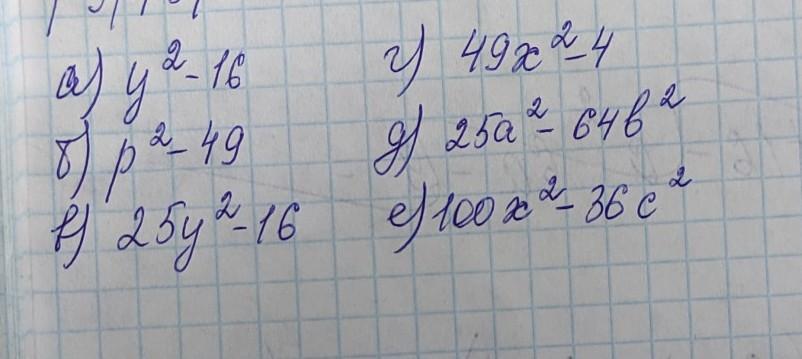 а) y² - 16
б) p² - 49
в) 25y² - 16
г) 49x² - 4
д) 25a² - 64b²
е) 100x² - 36c²